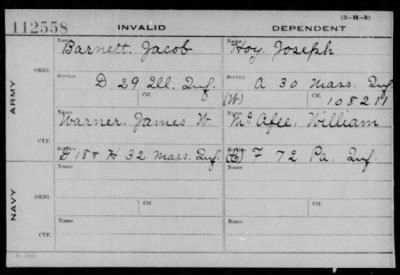 (3-H-3)
112558 INVALID DEPENDENT
Name Name
Barnett. Jacob Hoy Joseph
ORIG.
ARMY Service Service
D 29 Ill. Inf. A 30 Mass. Inf
Ctf. (W) Ctf. 108211
Name Name
Warner. James W McAfee. William
CTF.
Service Service
E 18 & H 32 Mass. Inf. (C) F 72 Pa. Inf
Name Name
ORIG.
NAVY Ctf. Ctf.
Name Name
CTF.